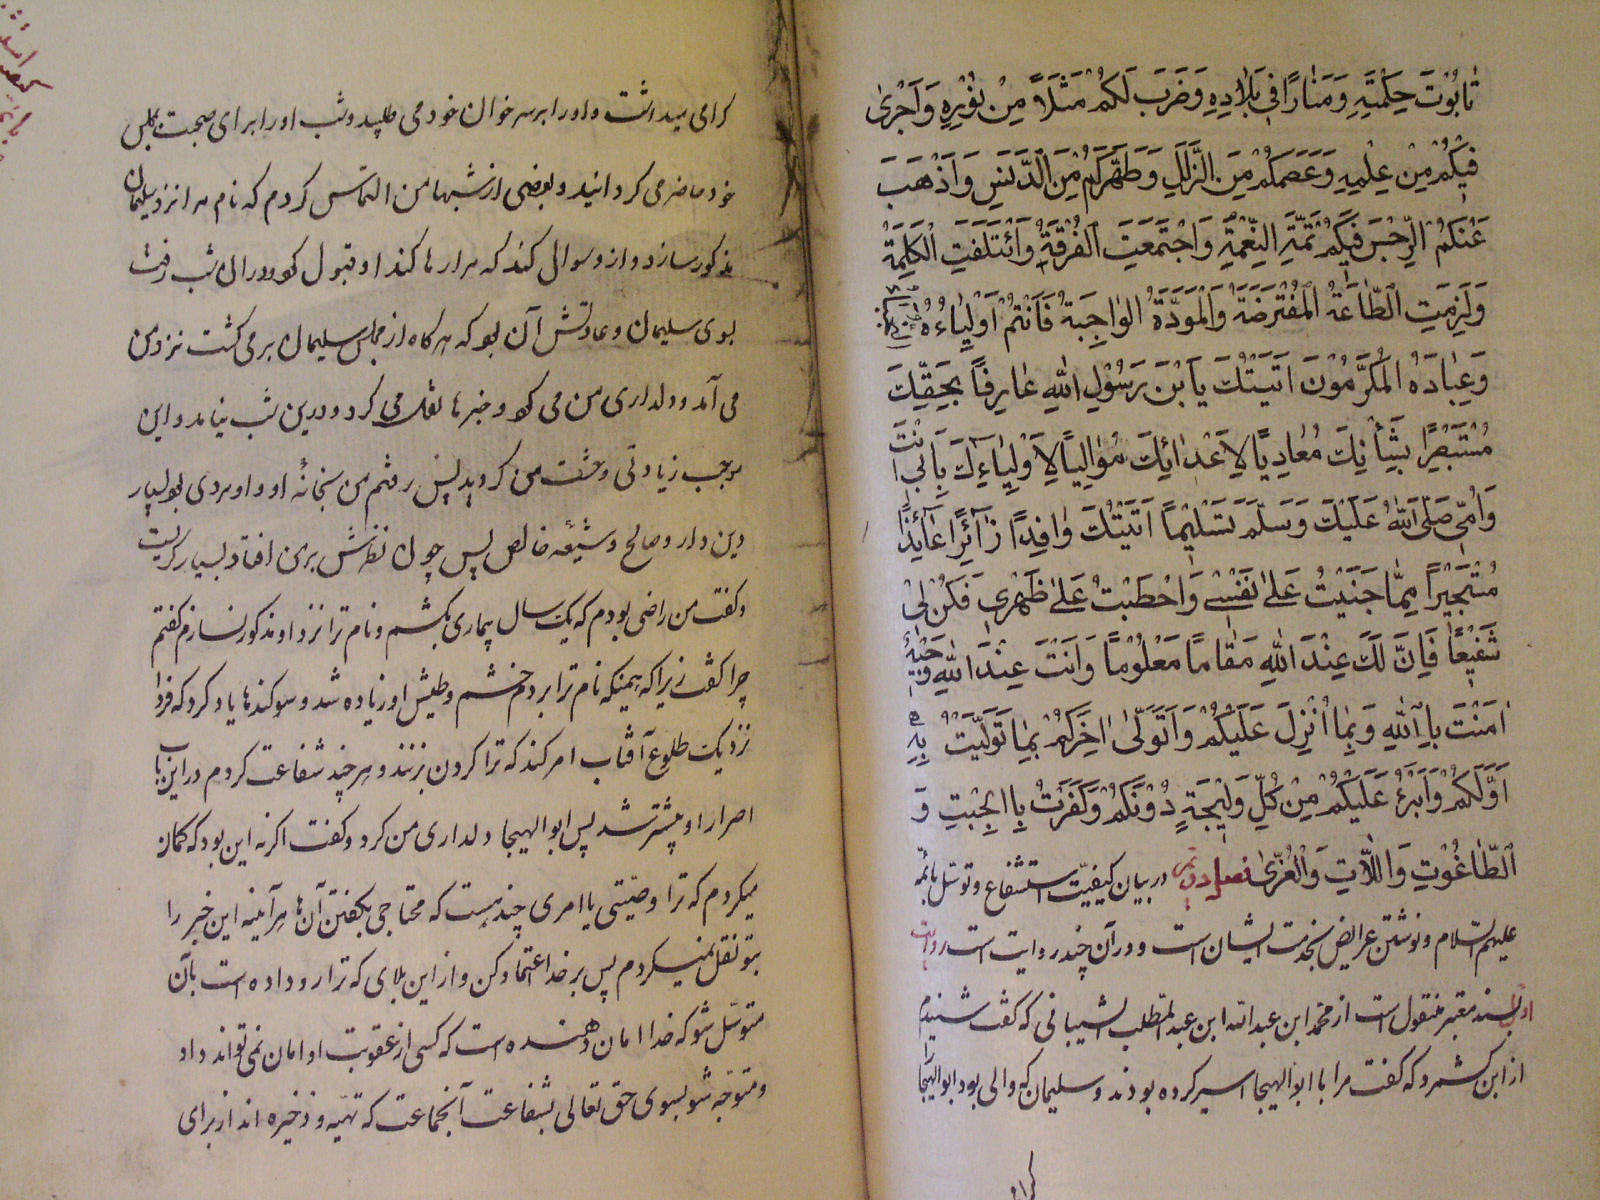 تابُوتَ حِكْمَتِهِ وَمَنارًا فِي بِلادِهِ وَضَرَبَ لَكُمْ مَثَلاً مِنْ نُوْرِهِ وَاَجْرىٰ
فِيكُمْ مِنْ عِلْمِهِ وَعَصَمَكُمْ مِنَ الزَّلَلِ وَطَهَّرَكُمْ مِنَ الدَّنَسِ وَاَذْهَبَ
عَنْكُمُ الرِّجْسَ فَبِكُمْ تَمَّتِ النِّعْمَةِ وَاجْتَمَعَتِ الْفُرْقَةُ وَائْتَلَفَتِ الْكَلِمَةُ
وَلَزِمَتِ الطّاعَةُ الْمُفْتَرَضَةُ وَالْمَوَدَّةُ الواجِبَةُ فَاَنْتُمْ اَوْلِياءُهُ
وَعِبادَهُ الْمُكَرَّمُونَ اَتَيْتُكَ يَا بْنَ رَسُوْلِ اللهِ عارِفاً بِحَقِّكَ
مُسْتَبْصِرًا بِشَأْنِكَ مُعادِيًا لِاَعْدائِكَ مُوالِيًا لِاَوْلِياءِكَ بِاَبي اَنْتَ
وَاُمّي صَلَّى اللهُ عَلَيْكَ وَسَلَّمَ تَسْلِيْمًا اَتَيْتُكَ وافِدًا زآئِرًا عآئِذًا
مُسْتَجِيْرًا مِمّا جَنَيْتُ عَلىٰ نَفْسي وَاحْطَبْتُ عَلىٰ ظَهْري فَكُنْ لِيْ
شَفِيْعًا فَاِنَّ لَكَ عِنْدَ اللهِ مَقامًا مَعْلُوْمًا وَاَنْتَ عِنْدَ اللهِ وَجِيْهٌ
امَنْتُ بِاللهِ وَبِما اُنْزِلَ عَلَيْكُمْ وَاَتَوَلّىٰ اخِرَكُمْ بِما تَوَلَّيْتُ بِهِ
اَوَّلَكُمْ وَاَبْرَءُ عَلَيْكُمْ مِنْ كُلِّ وَلِيْجَةٍ دُوْنَكُمْ وَكَفَرْتُ بِالْجِبْتِ وَ
الطّاغُوْتِ وَاللّاتِ وَالْعُزّىٰ در بيان كيفيت استشفاع و توسل بائمه
عليهم السلام و نوشتن عرايض بخدمت ايشان است و در آن چند روايت است روايت
اول بسند معتبر منقول است از محمد ابن عبد الله ابن عبد المطلب الشيبانى كه گفت شنيدم
از ابن كشمرد كه گفت مرا با ابو الهيجا اسير كرده بودند و سليمان كه والى بود ابو الهيجا را
گرامى ميداشت و او را بر سر خوان خود مى طلبيد و شب او را براى صحبت بمجلس
خود حاضر مى گردانيد و بعضى از شبها من التماس كردم كه نام مرا نزد سليمان
مذكور سازد و از او سوال كند كه مرا رها كند او قبول كرد و در ان شب رفت
بسوى سليمان و عادتش آن بود كه هرگاه از مجلس سليمان بر مى گشت نزد من
مى آمد و دلدارى من مى كرد و خبرها نقل مى كرد و درين شب نيامد و اين
موجب زيادتى وحشت من گرديد پس رفتم من بخانهٔ او و او مردى بود بسيار
دين دار و صالح و شيعه خالص پس چون نظرش برمن افتاد بسيار گريست
و گفت من راضى بودم كه يكسال بيمارى بكشم و نام ترا نزد او مذكور نسازم گفتم
چرا گفت زيرا كه همينكه نام ترا بردم خشم و طيش او زياده شد و سوگندها ياد كرد كه فردا
نزديك طلوع آفتاب امر كند كه ترا گردن بزنند و هرچند شفاعت كردم دراين باب
اصرار او بيشتر شد پس ابو الهيجا دلدارى من كرد و گفت اگر نه اين بود كه گمان
ميكردم كه ترا وصيتى يا امرى چند هست كه محتاجى بگفتن آن ها هرآينه اين خبر را
بتو نقل نميكردم پس بر خدا اعتماد كن و از اين بلاى كه ترا رو داده است بآن
متوسل شو كه خدا امان دهنده است كه كسى از عقوبت او امان نمى تواند داد
و متوجه شو بسوى حق تعالى بشفاعت آنجماعت كه تهيه و ذخيره اند از براى